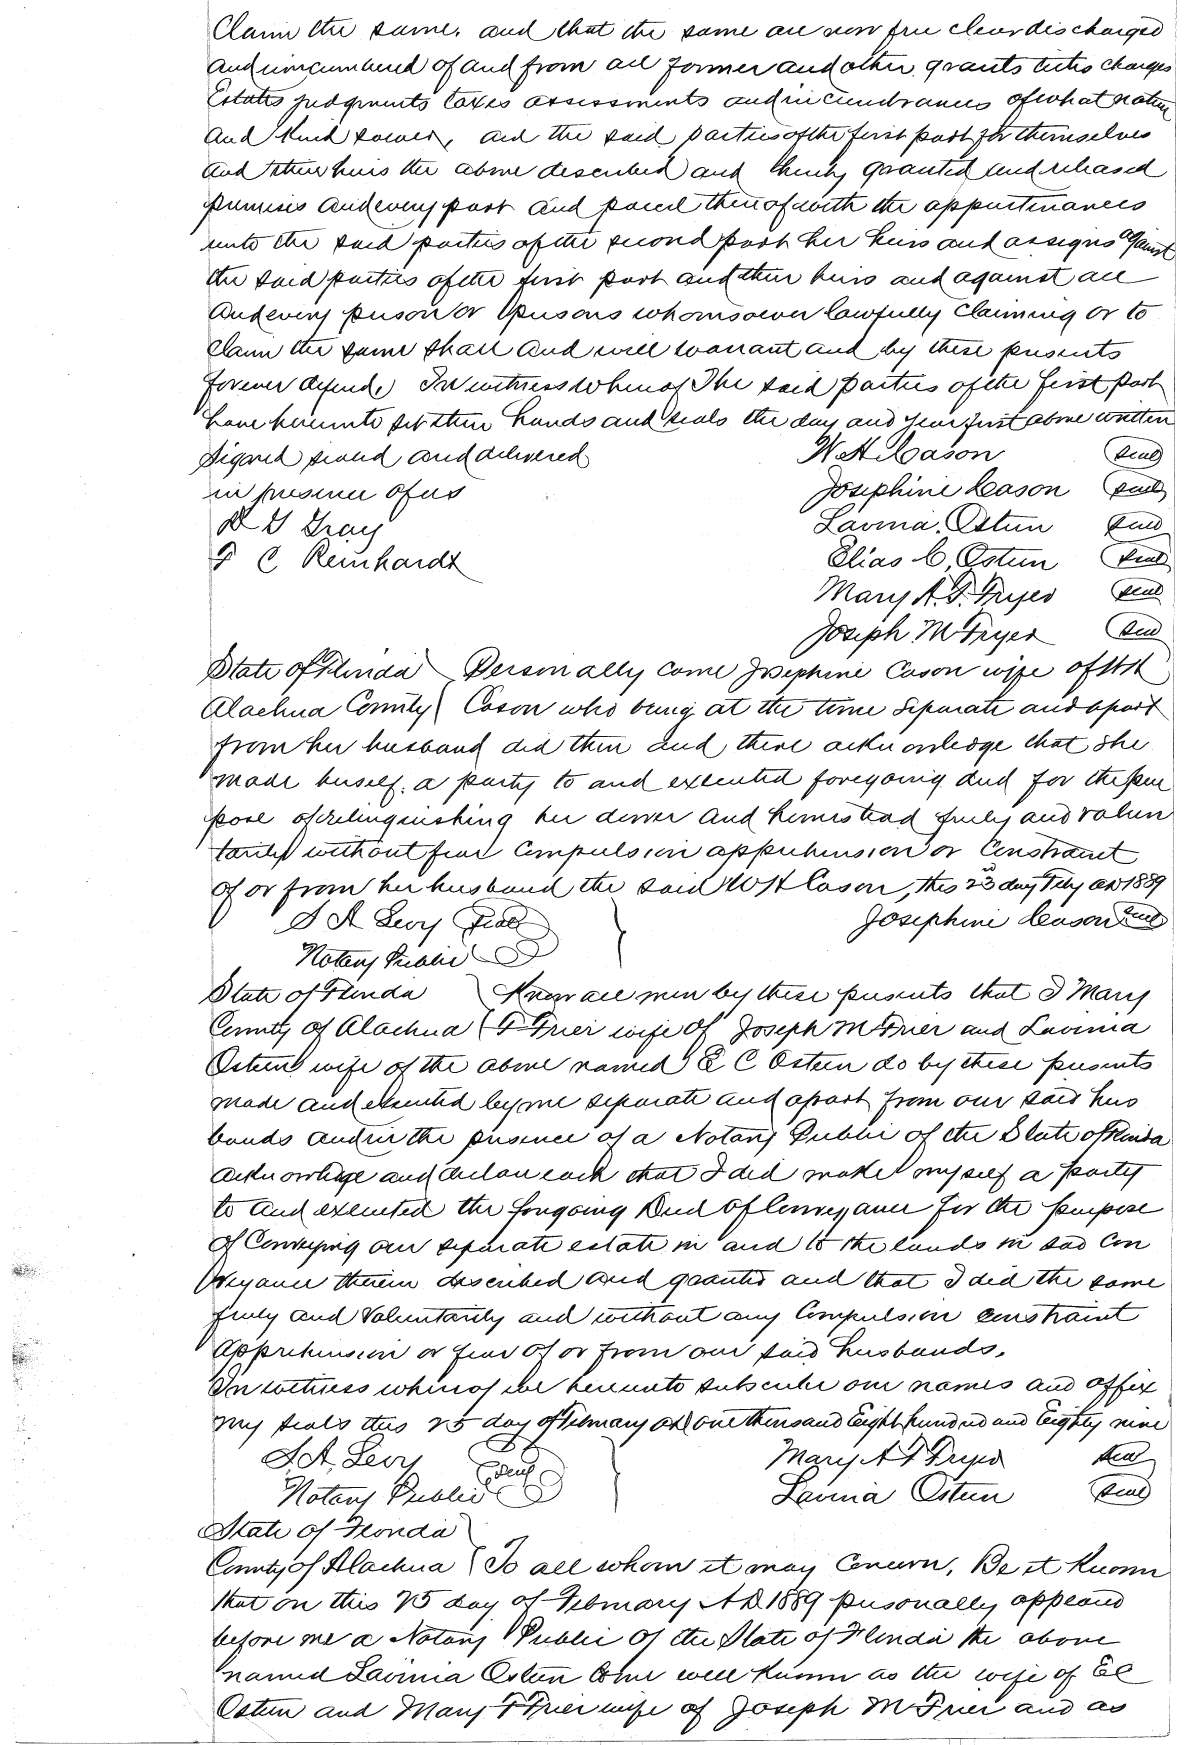 Claim the same. and that the same are now free clear discharged
and unincumbered of and from all former and other grants titles charges
Estates judgments taxes assessments and incumbrances of what nature
and kind soever, and the said parties of the first part for themselves
and their heirs the above described and hereby granted and released
premises and every part and parcel thereof with the appurtenances
unto the said parties of the second part her heirs and assigns against
the said parties of the first part and their heirs and against all
and every person or persons whomsoever lawfully claiming or to
claim the same shall and will warrant and by these presents
forever defend. In witness whereof The said parties of the first part
have hereunto set their hands and seals the day and year first above written
Signed sealed and delivered W H Cason seal
in presence of us Josephine Cason seal
Gray Lavinia Osteen seal
C Reinhardt Elias C. Osteen seal
Mary A. F. Fryer seal
Joseph M Fryer seal
State of Florida Personally come Josephine Cason wife of WH
Alachua County Cason who being at the time separate and apart
from her husband did then and there acknowledge that she
made herself a party to and executed foregoing deed for the pur
pose of relinquishing her dower and homestead freely and volun
tarily without fear Compulsion apprehension or Constraint
of or from her husband the said W H Cason, this 23 day Feby AD 1889
S A Levy seal Josephine Cason seal
Notary Public
State of Florida Know all men by these presents that I Mary
County of Alachua F Frier wife of Joseph M Frier and Lavinia
Osteen wife of the above named E C Osteen do by these presents
made and executed by me separate and apart from our said hus
bands and in the presence of a Notary Public of the State of Florida
acknowledge and declare each that I did make myself a party
to and executed the forgoing Deed of Conveyance for the purpose
of Conveying our separate estate in and to the lands in said Con
veyance therein described and granted and that I did the same
freely and Voluntarily and without any Compulsion constraint
apprehension or fear of or from our said husbands.
In witness whereof we hereunto subscribe our names and affix
my seals this 25 day of February AD one thousand Eight hundred and Eighty nine
S. A. Levy seal Mary A F Fryer seal
Notary Public Lavinia Osteen seal
State of Florida
County of Alachua To all whom it may Concern, Be it Known
that on this 25 day of February A D. 1889 personally appeared
before me a Notary Public of the State of Florida the above
named Lavinia Osteen to me well Known as the wife of E C
Osteen and Mary F Frier wife of Joseph M Frier and as